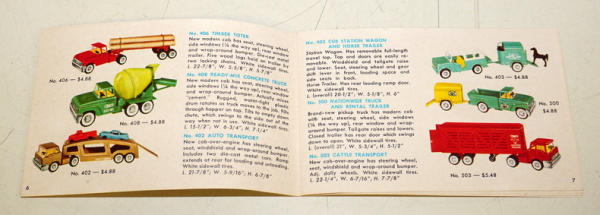 No. 406 — $4.88
No. 408 — $4.88
No. 402 — $4.88
6
No. 406 TIMBER TOTER
New modern cab has seat, steering wheel,
side windows (¼ the way up), rear window
and wrap-around bumper. Dual axle
trailer. Five wood logs held on trailer by
two locking chains. White sidewall tires.
L. 22-7/8" W. 5-5/8" H. 5-7/8"
No. 408 READY-MIX CONCRETE TRUCK
New modern cab has seat, steering wheel,
side windows (¼ the way up), rear window
and wrap-around bumper. Really mixes
"cement." Rugged, water-tight plastic
drum rotates as truck moves to the job. Fill
through hopper on top. Tilts to empty down
chute, which swings to the side out of the
way when not in use. White sidewall tires.
L. 15-1/2", W. 6-3/4", H. 7-1/4"
No. 402 AUTO TRANSPORT
New cab-over-engine has steering wheel,
seat, windshield and wrap-around bumper.
Includes two die-cast metal cars. Ramp
extends at rear for loading and unloading.
White sidewall tires.
L. 21-7/8", W. 5-9/16", H. 6-7/8"
No. 402 CUB STATION WAGON
AND HORSE TRAILER
Station Wagon. Has removable full-length
travel top. Top and doors are easily re-
movable. Windshield and tailgate raise
and lower. Seat, steering wheel and gear
shift lever in front, loading space and
side seats in back.
Horse Trailer. Has rear loading ramp door.
White sidewall tires.
L. (overall) 20-1/2", W. 5-5/8", H. 6"
No. 500 NATIONWIDE TRUCK
AND RENTAL TRAILER
Brand-new pickup truck has modern cab
with seat, steering wheel, side windows
(¼ the way up), rear window and wrap-
around bumper. Tailgate raises and lowers.
Closed trailer has rear door which swings
down to open. White sidewall tires.
L. (overall) 21", W. 5-3/4", H. 5-1/2"
No. 503 CATTLE TRANSPORT
New cab-over-engine has steering wheel,
seat, windshield and wrap-around bumper.
Adj. dolly wheels. White sidewall tires.
L. 22-1/4", W. 6-7/16", H. 7-7/8"
No. 402 — $4.88
No. 500
$4.88
No. 503 — $5.48
7